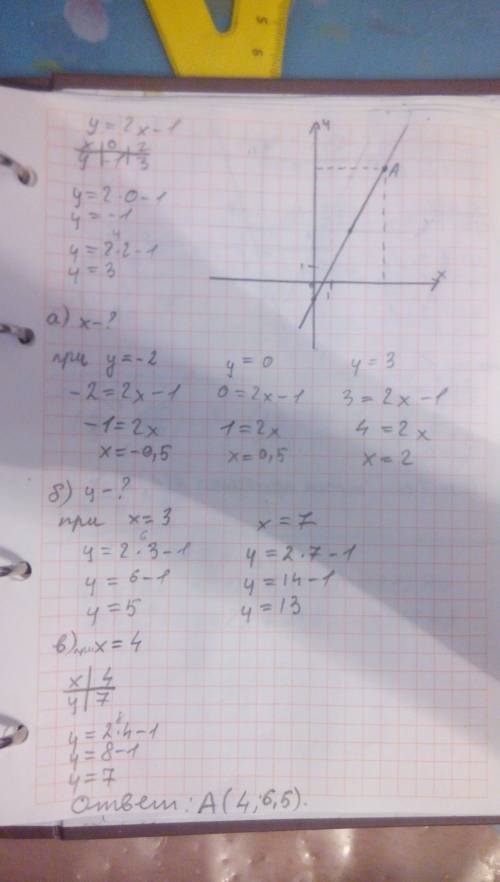 5
6
y = 2x - 1
x | 0 | 2
y | -1 | 3
y = 2·0 - 1
y = -1
4
y = 2·2 - 1
y = 3
y
A
x
1
1
а) x - ?
при y = -2 y = 0 y = 3
-2 = 2x - 1 0 = 2x - 1 3 = 2x - 1
-1 = 2x 1 = 2x 4 = 2x
x = -0,5 x = 0,5 x = 2
б) y - ?
при x = 3 x = 7
6
y = 2·3 - 1 y = 2·7 - 1
y = 6 - 1 y = 14 - 1
y = 5 y = 13
в) при x = 4
x | 4
y | 7
8
y = 2·4 - 1
y = 8 - 1
y = 7
Ответ: A(4; 6,5).